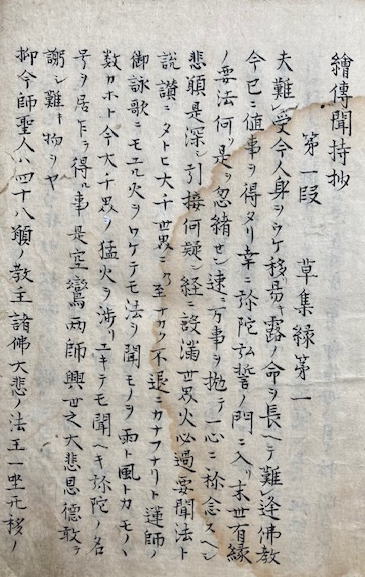 繪傳聞持抄
第一段　草集縁第一
夫難受今人身ヲウケ移易キ露ノ命ヲ長ヘテ難逢佛教
今已ニ値事ヲ得タリ幸ニ弥陀弘誓ノ門ニ入リ末世有縁
ノ要法何ソ是ヲ忽緒セン速ニ万事ヲ抛テ一心ニ称念スヘシ
悲願是深シ引接何疑ン経ニ設満世界火必過要聞法ト
説讃ニタトヒ大千世界ニ乃至ナカク不退ニカナフナリト蓮師ノ
御詠歌ニモエル火ヲワケテモ法ヲ聞モノヲ雨ト風トカモノヽ
数カホト今大千界ノ猛火ヲ渉リユキテモ聞ヘキ弥陀ノ名
号ヲ居乍ラ得ル事是空鸞两師興世之大悲恩德敢テ
謝シ難キ物ヲヤ
抑今師聖人ハ四十八願ノ教主諸佛大悲ノ法王一坐元移ノ